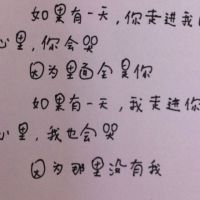 如果有一天,你走进我
心里,你会哭
因为里面全是你
如果有一天,我走进你
心里,我也会哭
因为那里没有我